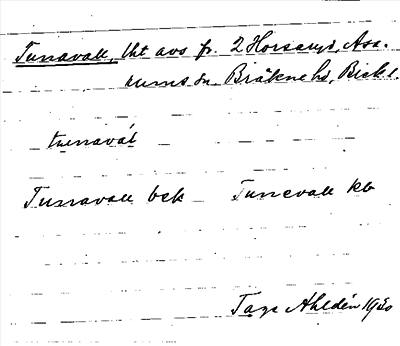 Tunavall, lht avs fr. 2 Horsaryd, Asa-
rums sn. Bräkne hd, Blek. l.
tunavál
Tunavall bek Tunevall kb
Tage Ahldén 1930